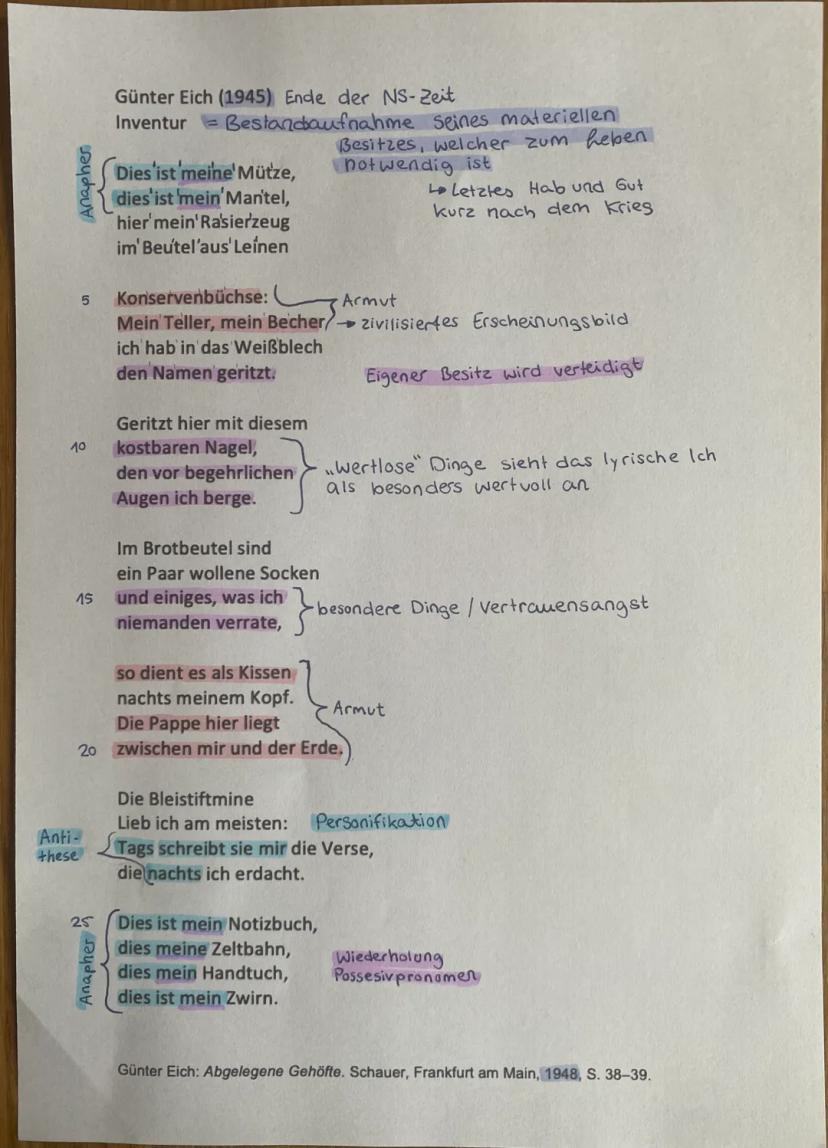 Günter Eich (1945) Ende der NS-Zeit
Inventur = Bestandsaufnahme seines materiellen
Besitzes, welcher zum Leben
notwendig ist
↳ Letztes Hab und Gut
kurz nach dem Krieg
Anapher
Dies ist meine Mütze,
dies ist mein Mantel,
hier mein Rasierzeug
im Beutel aus Leinen
5 Konservenbüchse: Armut
Mein Teller, mein Becher, → zivilisiertes Erscheinungsbild
ich hab in das Weißblech
den Namen geritzt. Eigener Besitz wird verteidigt
Geritzt hier mit diesem
10 kostbaren Nagel,
den vor begehrlichen „Wertlose“ Dinge sieht das lyrische Ich
Augen ich berge. als besonders wertvoll an
Im Brotbeutel sind
ein Paar wollene Socken
15 und einiges, was ich besondere Dinge / Vertrauensangst
niemanden verrate,
so dient es als Kissen
nachts meinem Kopf. Armut
Die Pappe hier liegt
20 zwischen mir und der Erde.
Die Bleistiftmine
Lieb ich am meisten: Personifikation
Anti-
these
Tags schreibt sie mir die Verse,
die nachts ich erdacht.
25 Dies ist mein Notizbuch,
dies meine Zeltbahn, Wiederholung
dies mein Handtuch, Possesivpronomen
dies ist mein Zwirn.
Anapher
Günter Eich: Abgelegene Gehöfte. Schauer, Frankfurt am Main, 1948, S. 38–39.